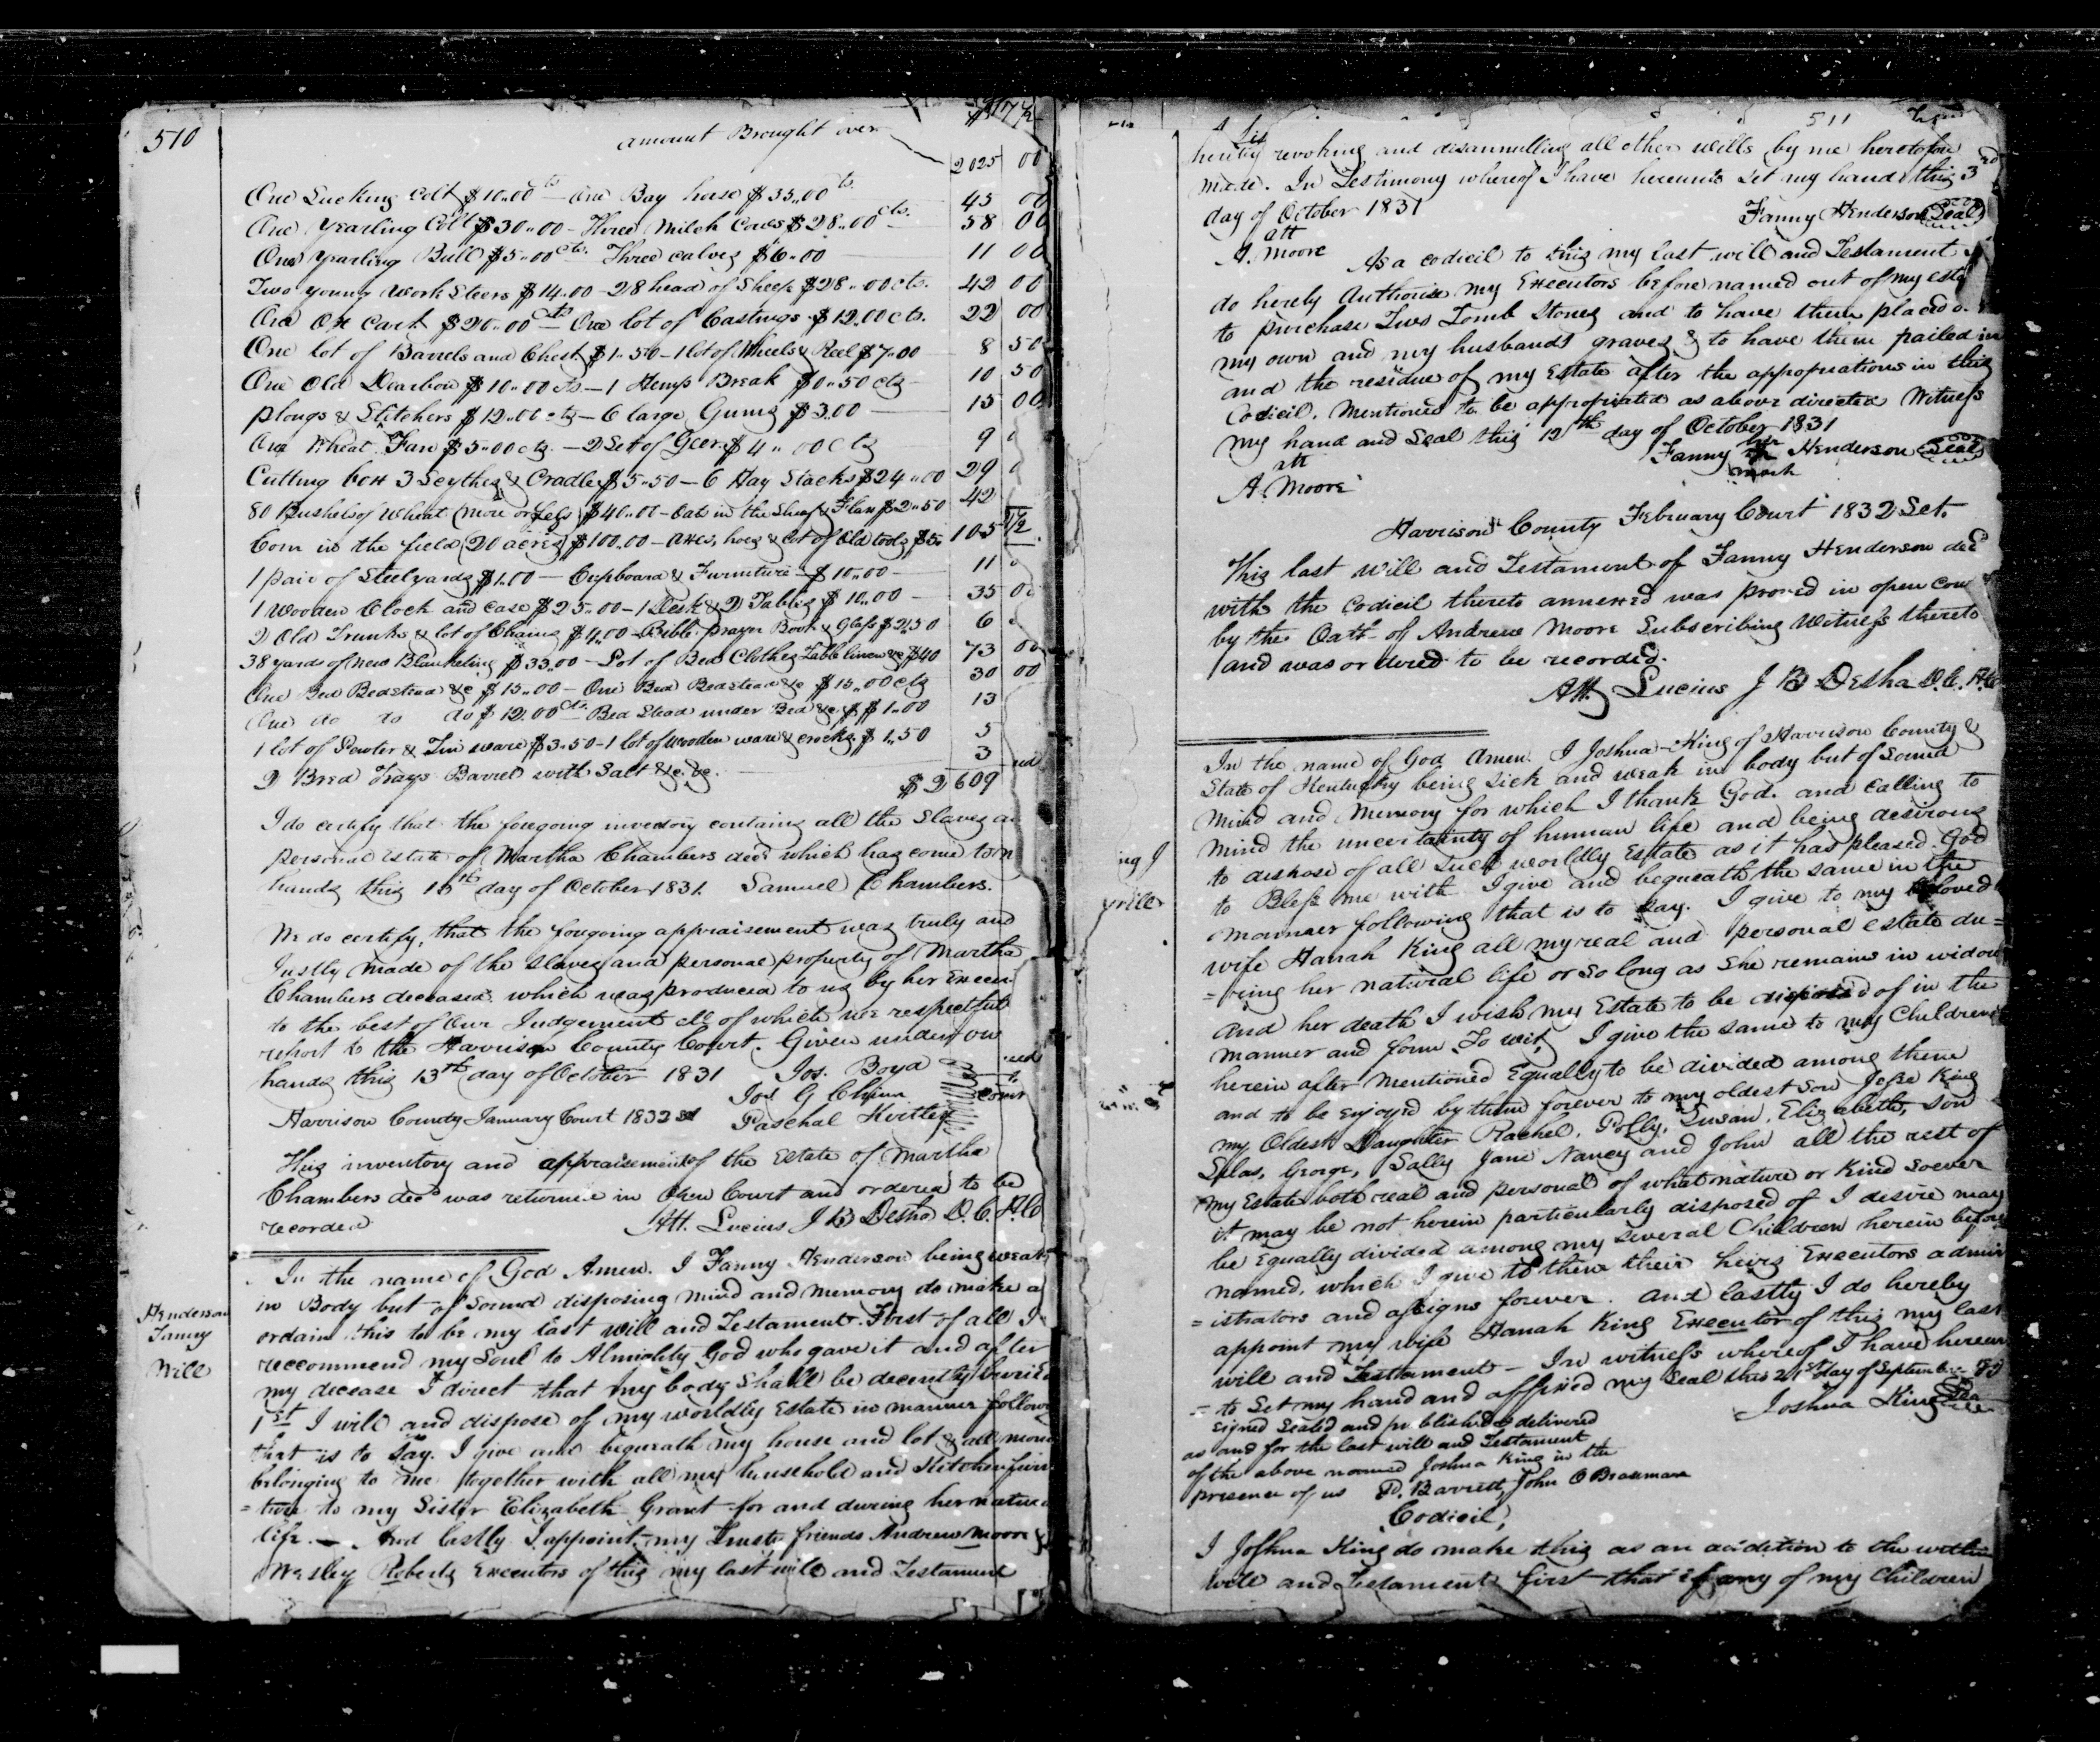 510
amount Brought over
2025 00
One Sucking Colt $10.00 cts — One Bay horse $35.00 cts. 45 00
One Yearling Colt $30..00 – Three Milch Cows $28..00 cts. 58 00
One yearling Bull $5..00 cts. Three calves $6..00 11 00
Two young work Steers $14.00 – 28 head of Sheep $28..00 cts. 42 00
One Ox Cart $20..00 cts One lot of Castings $12.00 cts. 22 00
One lot of Barrels and Chest $1..50 – 1 lot of Wheels & Reel $7..00 8 50
One Old Dearbon $10..00 cts – 1 Hemp Break $0..50 cts 10 50
plougs & Stitchers $12..00 cts – 6 large Gums $3.00 15 00
One Wheat Fan $5..00 cts. – 2 Set of Geer $4..00 cts 9
Cutting box 3 Scythes & Cradle $5..50 – 6 Hay Stacks $24..00 29
80 Bushels of Wheat (more or less) $40..00 – Oats in the Sheaf & Flax $2..50 42
Corn in the field (20 acres) $100.00 – axes, hoes & lot of Old tools $5. 105 1/2
1 pair of Steelyards $1.00 — Cupboard & Furniture $10..00 11
1 Wooden Clock and case $25..00 – 1 Desk & 2 Tables $10.00 35 00
2 Old Trunks & lot of Chains $4.00 – Bible prayer Book & Glass $2.50 6
38 yards of new Blanketing $33.00 – Lot of Bed Clothes Table linen &c $40 73 00
One Bed Bedstead &c $15..00 – One Bed Bedstead &c $15..00 cts 30 00
One do do do $12.00 cts Bed Stead under Bed &c $1..00 13
1 lot of Pewter & Tin ware $3.50 – 1 lot of wooden ware & crocks $1.50 5
2 Bred Trays Barrel with Salt &c. &c. 3
$2609
I do certify that the foregoing inventory contains all the Slaves an
personal Estate of Martha Chambers decd which has come to m
hands this 13th day of October 1831. Samuel Chambers.
We do certify, that the foregoing appraisement was truly and
Justly made of the Slaves and personal property of Martha
Chambers deceased which was produced to us by her Execu
to the best of Our Judgement all of which we respectful
report to the Harrison County Court. Given under our
hands this 13th day of October 1831 Jos. Boyd
Jos G Chinn
Harrison County January Court 1832 Set Paschal Kirtley
This inventory and appraisement of the Estate of Martha
Chambers decd was returned in Open Court and ordered to be
recorded Att. Lucius J B Desha D.C. H.C
Henderson
Fanny
Will
In the name of God Amen. I Fanny Henderson being weak
in Body but of Sound disposing mind and memory do make a
ordain this to be my last will and Testament. First of all I
reccommend my Soul to Almighty God who gave it and after
my decease I direct that my body Shall be decently buried
1st I will and dispose of my worldly Estate in manner follow
that is to Say. I give and bequeath my house and lot & all mone
belonging to me together with all my household and Kitchen furn
= ture to my Sister Elizabeth Grant for and during her natural
life. — And lastly I appoint my Trusty friends Andrew Moore &
Wesley Roberts Executors of this my last will and Testament
511
hereby revoking and disannulling all other wills by me heretofore
made. In Testimony whereof I have hereunto Set my hand this 3rd
day of October 1831 Fanny Henderson Seal
att
A. Moore As a codicil to this my last will and Testament I
do hereby Authorise my Executors before named out of my esta
to purchase Two Tomb Stones and to have them placed o
my own and my husbands graves & to have them pailed in
and the residue of my Estate after the appropriations in this
Codicil. Mentioned to be appropriated as above directed Witness
my hand and Seal this 12th day of October 1831
att Fanny her Henderson Seal
A. Moore mark
Harrison County February Court 1832 Set.
This last will and Testament of Fanny Henderson decd
with the Codicil thereto annexed was proved in open Cou
by the Oath of Andrew Moore Subscribing Witness thereto
and was ordered to be recorded.
Att. Lucius J B Desha D.C. H.C
ing J
will
In the name of God Amen. I Joshua King of Harrison County &
State of Kentucky being Sick and weak in body but of Sound
mind and Memory for which I thank God. and Calling to
mind the uncertainty of human life and being desirous
to dispose of all Such worldly Estate as it has pleased God
to Bless me with I give and bequeath the same in the
manner following that is to Say. I give to my beloved
wife Hanah King all my real and personal estate du=
= ring her natural life or so long as She remains in widow
and her death I wish my Estate to be disposed of in the
manner and form To wit, I give the same to my Children
herein after Mentioned Equally to be divided among them
and to be enjoyed by them forever to my oldest Son Jesse King
my Oldest Daughter Rachel, Polly, Susan, Elizabeth, Son
Silas, George, Sally Jane Nancy and John all the rest of
my Estate both real and personal of what nature or Kind soever
it may be not herein particularly disposed of I desire may
be Equally divided among my several Children herein before
named, which I give to them their heirs Executors admin
= istrators and assigns forever. and lastly I do hereby
appoint my wife Hanah King Executor of this my last
will and Testament – In witness whereof I have hereun
= to Set my hand and affixed my Seal this 21st day of September
Signed Sealed and published & delivered Joshua King Seal
as and for the last will and Testament
of the above named Joshua King in the
presence of us D. Barrett, John O Brannan
Codicil,
I Joshua King do make this as an addition to the within
will and Testament first that if any of my Children